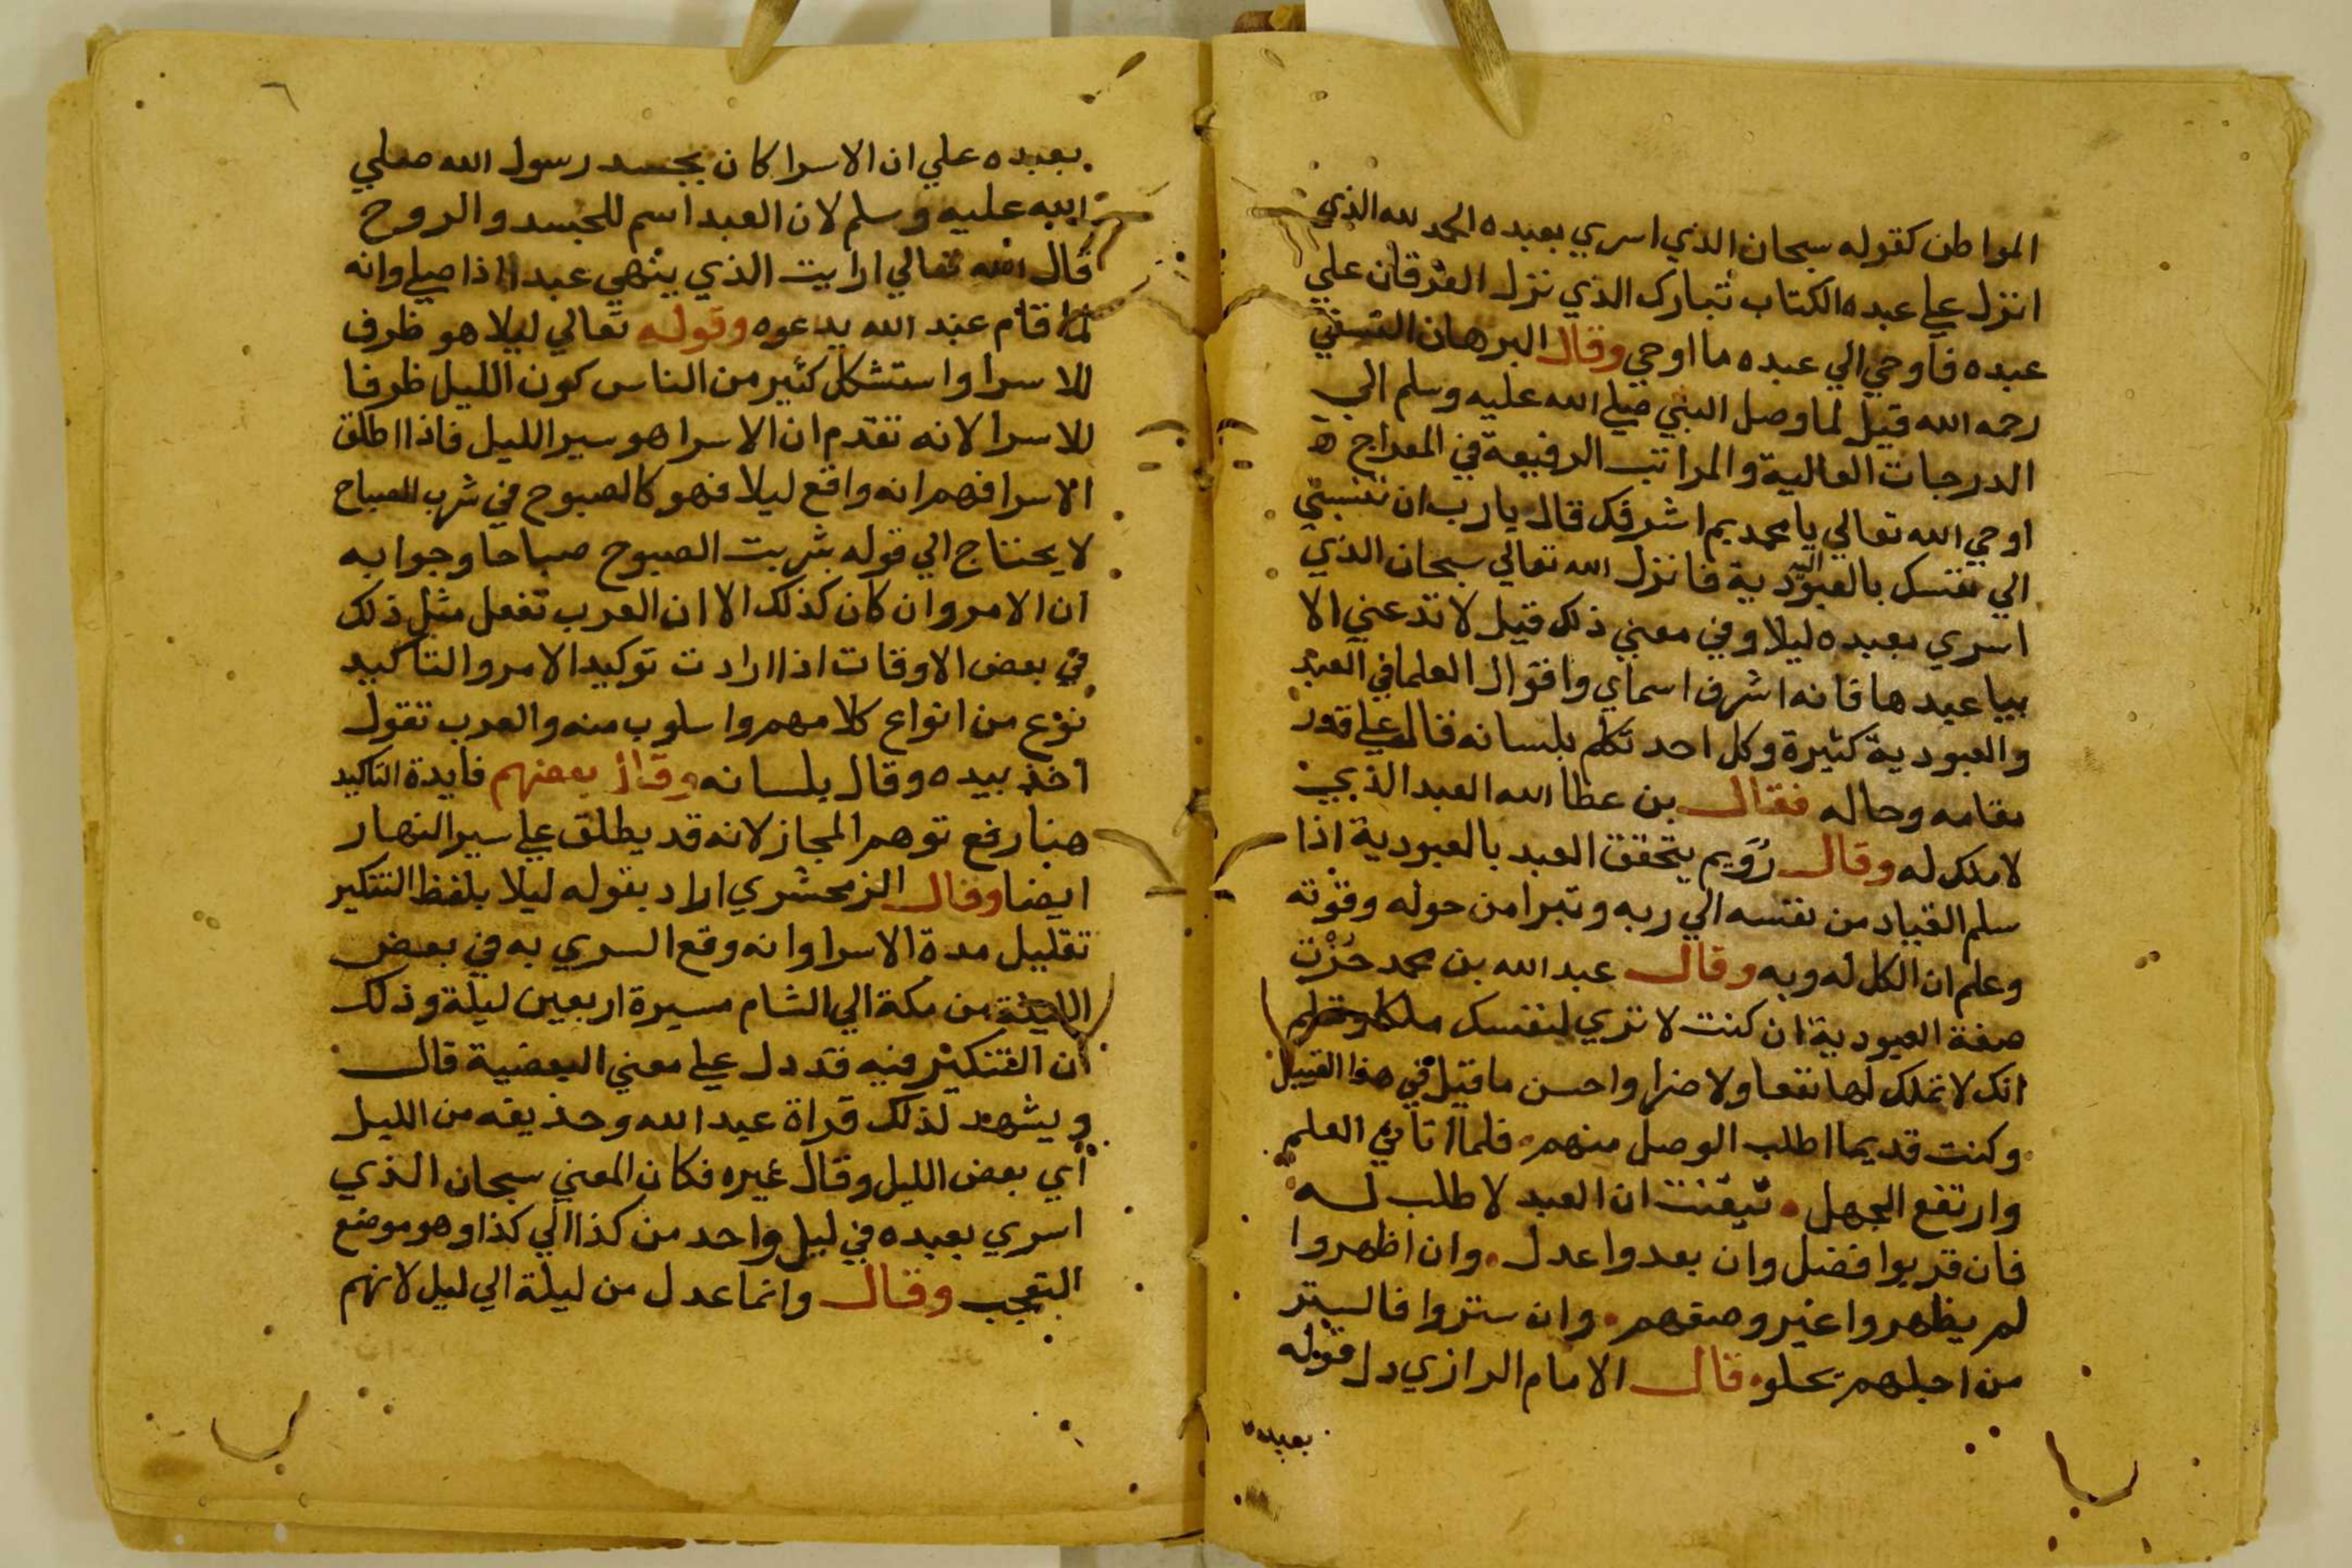 المواطن كقوله سبحان الذي اسري بعبده الحمد لله الذي
انزل علي عبده الكتاب تبارك الذي نزل الفرقان علي
عبده فاوحي الي عبده ما اوحي وقال البرهان النسفي
رحمه الله قيل لما وصل النبي صلي الله عليه وسلم الي
الدرجات العالية والمراتب الرفيعة في المعراج
اوحي الله تعالي يا محمد بم اشرفك قال يا رب ان تنسبني
الي نفسك بالعبودية فانزل الله تعالي سبحان الذي
اسري بعبده ليلا وفي معني ذلك قيل لا تدعني الا
بيا عبدها فانه اشرف اسماي واقوال العلما في العبد
والعبودية كثيرة وكل احد تكلم بلسانه فقال علي قدر
مقامه وحاله فقال بن عطا الله العبد الذي
لا ملك له وقال رُوَيم يتحقق العبد بالعبودية اذا
سلم القياد من نفسه الي ربه وتبرا من حوله وقوته
وعلم ان الكل له وبه وقال عبد الله بن محمد حُزْت
صفة العبودية ان كنت لا تري لنفسك ملكا وتعلم
انك لا تملك لها نفعا ولا ضرا واحسن ما قيل في هذا القبيل
وكنت قديما اطلب الوصل منهم فلما اتاني العلم
وارتفع الجهل تيقنت ان العبد لا طلب له
فان قربوا فضل وان بعدوا عدل وان اظهروا
لم يظهروا غير وصفهم وان ستروا فالستر
من اجلهم يحلو قال الامام الرازي دل قوله
بعبده
بعبده علي ان الاسرا كان بجسد رسول الله صلي
الله عليه وسلم لان العبد اسم للجسد والروح
قال الله تعالي ارايت الذي ينهي عبدا اذا صلي وانه
لما قام عبد الله يدعوه وقوله تعالي ليلا هو ظرف
للاسرا واستشكل كثير من الناس كون الليل ظرفا
للاسرا لانه تقدم ان الاسرا هو سير الليل فاذا اطلق
الاسرا فهم انه واقع ليلا فهو كالصبوح في شرب الصباح
لا يحتاج الي قوله شربت الصبوح صباحا وجوابه
ان الامر وان كان كذلك الا ان العرب تفعل مثل ذلك
في بعض الاوقات اذا ارادت توكيد الامر والتاكيد
نوع من انواع كلامهم واسلوب منه والعرب تقول
اخذ بيده وقال بلسانه وقال بعضهم فايدة التاكيد
هنا رفع توهم المجاز لانه قد يطلق علي سير النهار
ايضا وقال الزمخشري اراد بقوله ليلا بلفظ التنكير
تقليل مدة الاسرا وانه وقع السري به في بعض
الليلة من مكة الي الشام مسيرة اربعين ليلة وذلك
ان التنكير فيه قد دل علي معني البعضية قال
ويشهد لذلك قراة عبد الله وحذيفه من الليل
أي بعض الليل وقال غيره فكان المعني سبحان الذي
اسري بعبده في ليل واحد من كذا الي كذا وهو موضع
التعجب وقال وانما عدل من ليلة الي ليل لانهم